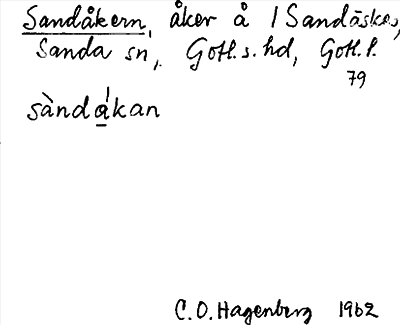 Sandåkern, åker å 1 Sandäskes,
Sanda sn, Gotl. s. hd, Gotl. l.
79
sàndá̲kan
C. O. Hagenberg 1962